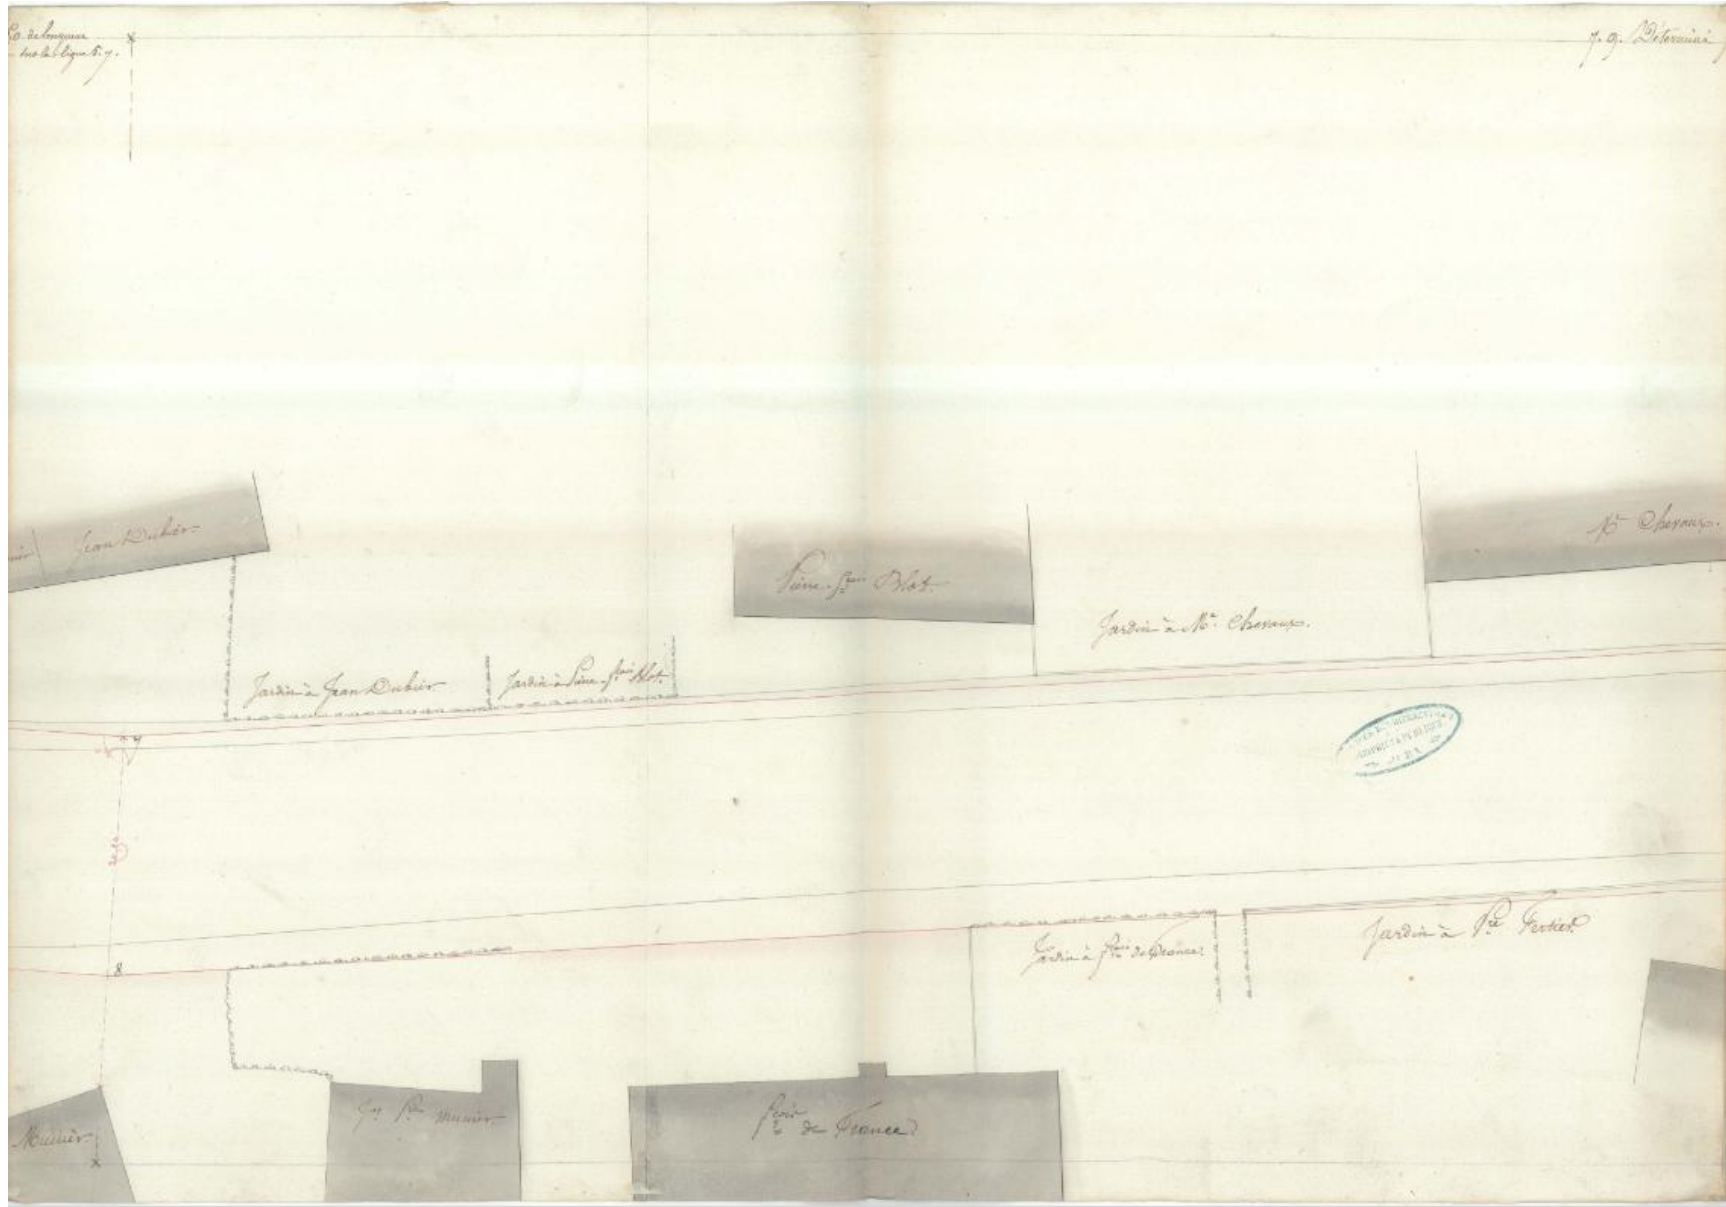 de longueur
sur la ligne 5.7.
7. 9. Déterminé
Jean Dubiez
Pierre fçois Blot.
Mr Chevaux.
Jardin à Mr Chevaux.
Jardin à Jean Dubiez
Jardin à Pierre fçois Blot.
7
8
Jardin à fçois de France.
Jardin à Pre Fertier
Munier
Jn Pre Munier
fçois
de France.